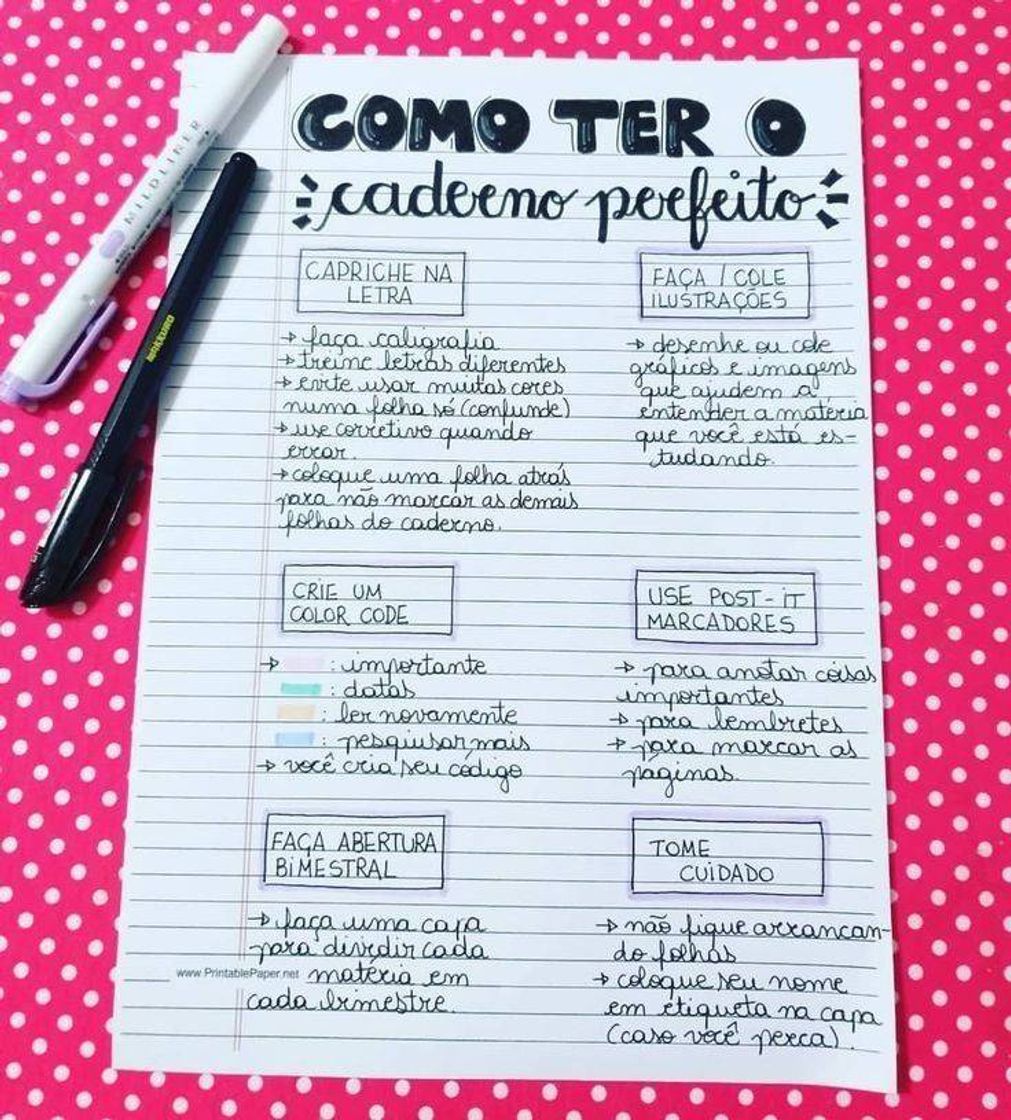 COMO TER O
caderno perfeito
CAPRICHE NA
LETRA
→ faça caligrafia
→ treine letras diferentes
→ evite usar muitas cores
numa folha só (confunde)
→ use corretivo quando
errar.
→ coloque uma folha atrás
para não marcar as demais
folhas do caderno.
FAÇA / COLE
ILUSTRAÇÕES
→ desenhe ou cole
gráficos e imagens
que ajudem a
entender a matéria
que você está es-
tudando.
CRIE UM
COLOR CODE
→ : importante
: datas
: ler novamente
: pesquisar mais
→ você cria seu código
USE POST-IT
MARCADORES
→ para anotar coisas
importantes
→ para lembretes
→ para marcar as
páginas.
FAÇA ABERTURA
BIMESTRAL
→ faça uma capa
para dividir cada
matéria em
cada bimestre.
TOME
CUIDADO
→ não fique arrancan-
do folhas
→ coloque seu nome
em etiqueta na capa
(caso você perca).
www.PrintablePaper.net
MILDLINER